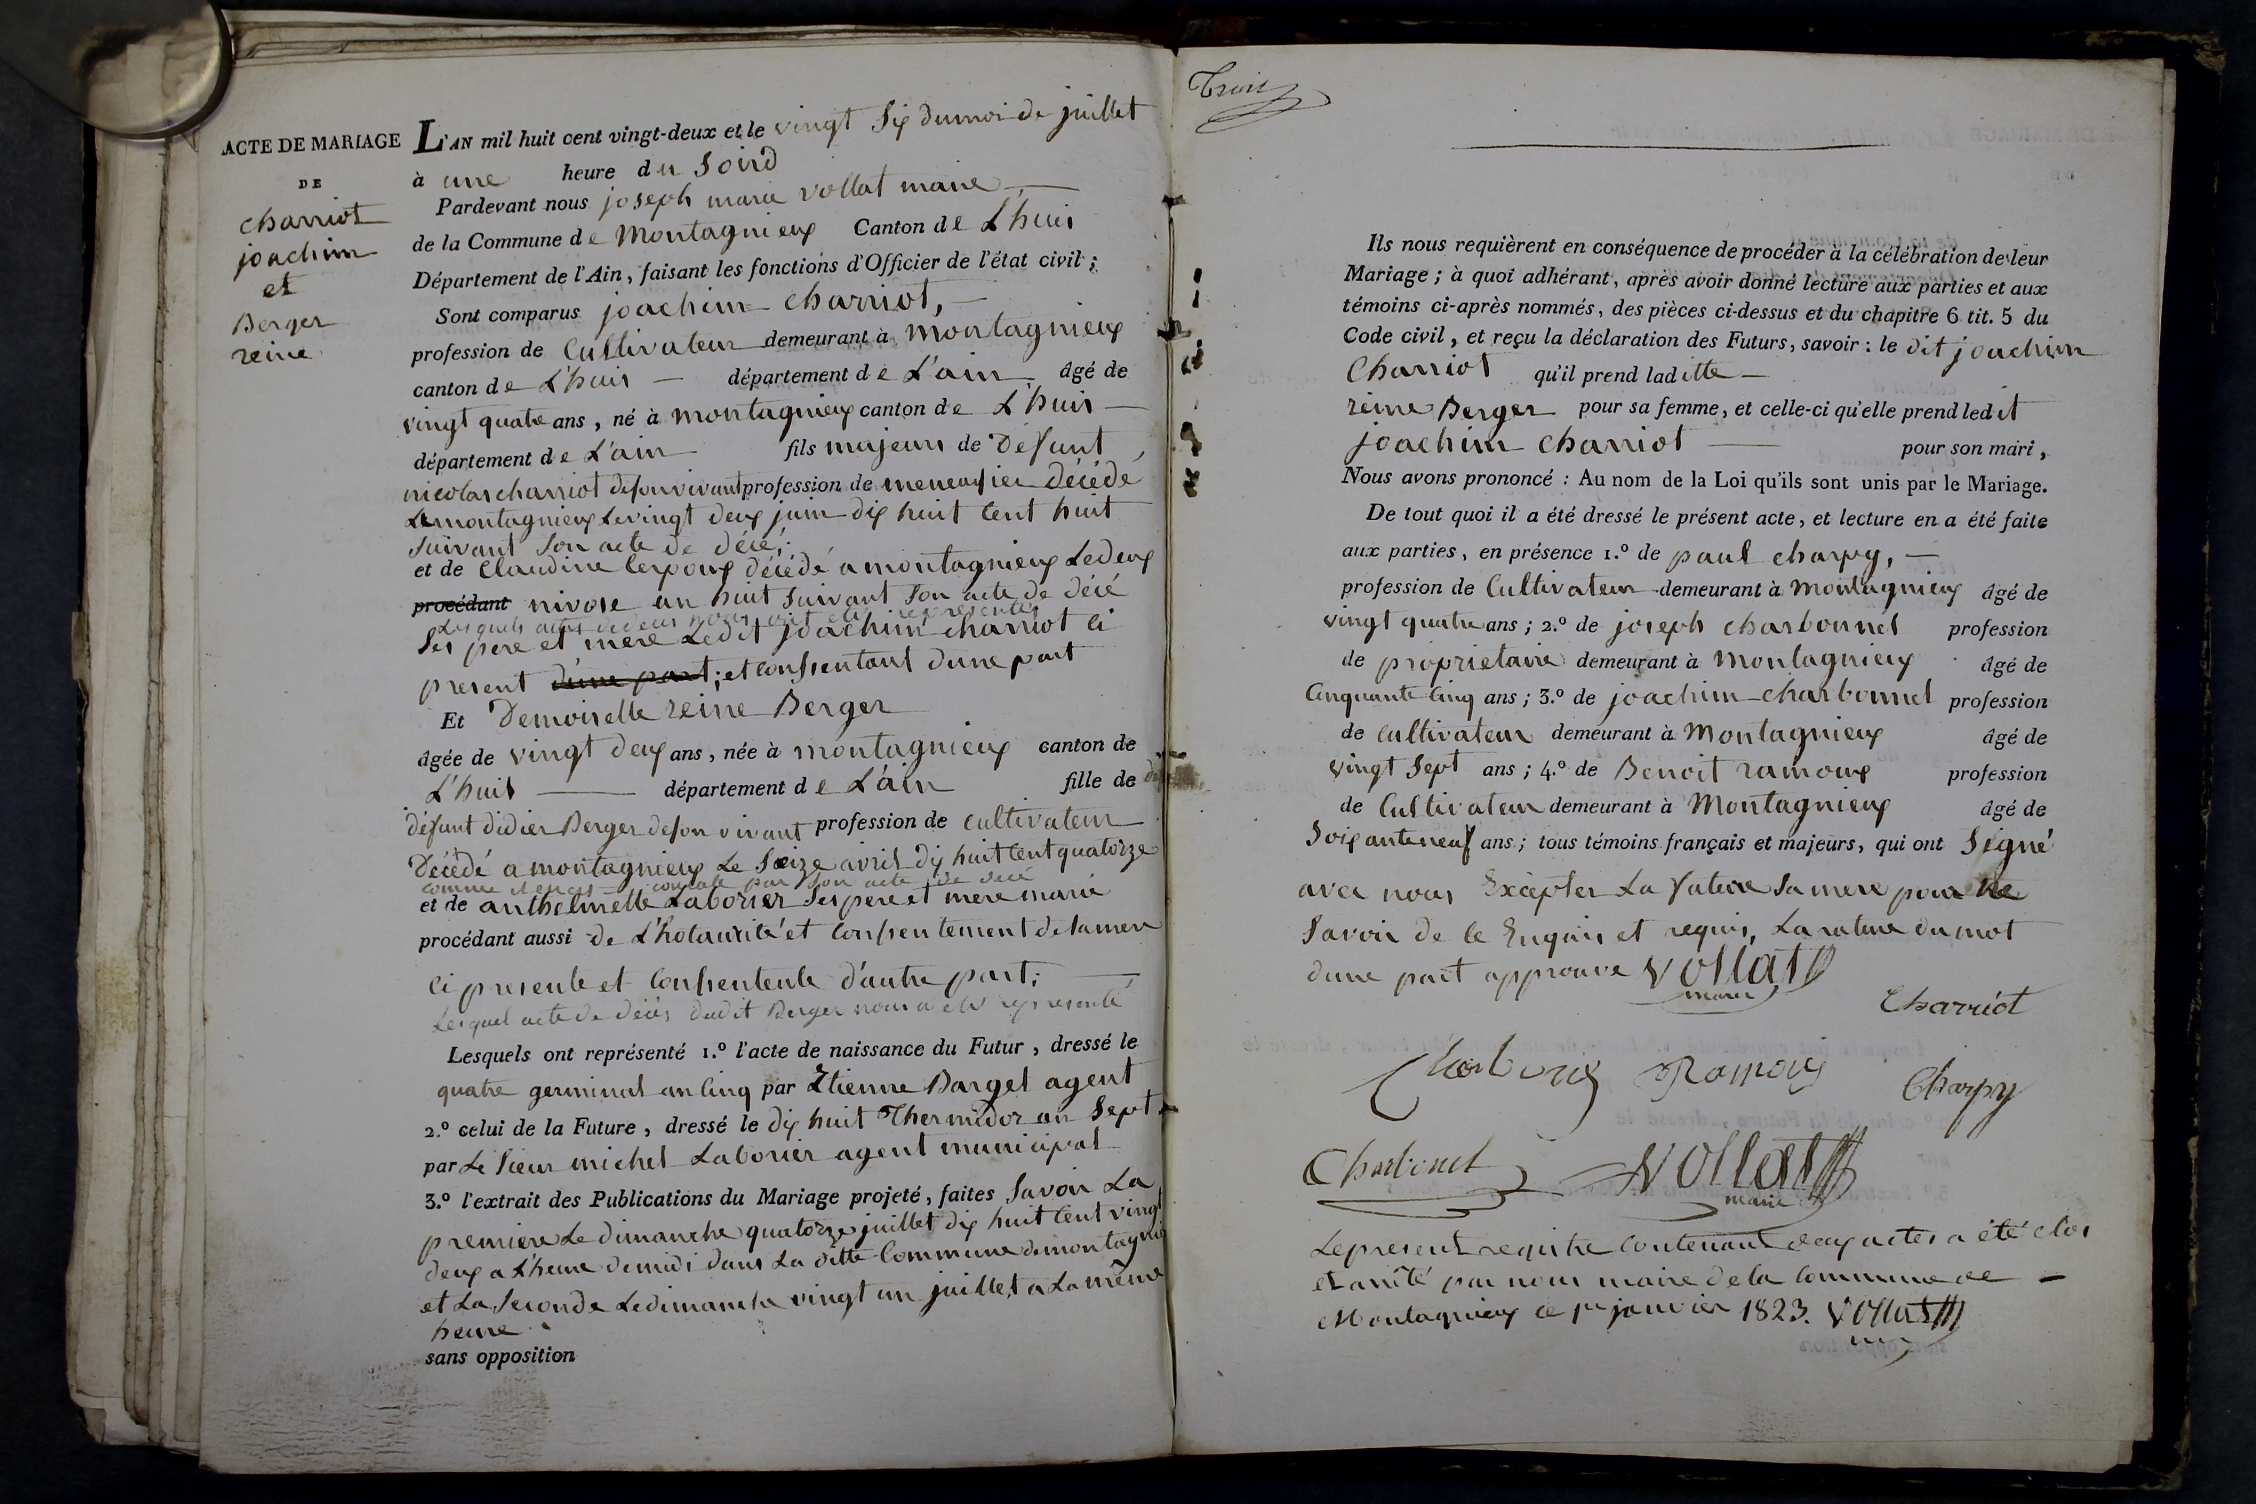 ACTE DE MARIAGE
DE
charriot
joachim
et
Berger
reine
L'AN mil huit cent vingt-deux et le vingt Six du moi de juillet
à une heure du Soird
Pardevant nous joseph marie vollat maire
de la Commune de Montagnieux Canton de L'huis
Département de l'Ain, faisant les fonctions d'Officier de l'état civil;
Sont comparus joachim charriot,
profession de Cultivateur demeurant à montagnieux
canton de L'huis département de L'ain âgé de
vingt quatre ans, né à montagnieux canton de L'huis
département de L'ain fils majeur de défunt
nicolas charriot de son vivant profession de meneusier décédé
a montagnieux le vingt deux juin dix huit Cent huit
suivant Son acte de décé;
et de Claudine Cerpoux décédé a montagnieux Le deux
procédant nivose an huit Suivant Son acte de décé
Lesquels actes de décès nous ont etés representés
Ses pere et mere Le dit joachim charriot Ci
present d'une part; et Consentant d'une part
Et Demoiselle reine Berger
âgée de vingt deux ans, née à montagnieux canton de
L'huis département de L'ain fille de
défunt didier Berger de son vivant profession de cultivateur
Décédé a montagnieux Le Seize avril dix huit Cent quatorze
comme constaté par son acte de décé
et de anthelmette Laborier Ses pere et mere marié
procédant aussi de L'hotaurité et Consentement de Sa mere
Ci presente et Consentente d'autre part;
Lesquel acte de décès dudit Berger nous a eté representé
Lesquels ont représenté 1.º l'acte de naissance du Futur, dressé le
quatre germinal an Cinq par Etienne Barget agent
2.º celui de la Future, dressé le dix huit Thermidor an Sept
par Le Sieur michel Laborier agent municipal
3.º l'extrait des Publications du Mariage projeté, faites Savoir La
premiere Le dimanche quatorze juillet dix huit Cent vingt
deux a L'heure de midi dans La ditte Commune de montagnieux
et La Seconde Le dimanche vingt un juillet a La même
heure
sans opposition
Trois
Ils nous requièrent en conséquence de procéder à la célébration de leur
Mariage; à quoi adhérant, après avoir donné lecture aux parties et aux
témoins ci-après nommés, des pièces ci-dessus et du chapitre 6 tit. 5 du
Code civil, et reçu la déclaration des Futurs, savoir: le dit joachim
Charriot qu'il prend laditte
reine Berger pour sa femme, et celle-ci qu'elle prend ledit
joachim charriot pour son mari,
Nous avons prononcé: Au nom de la Loi qu'ils sont unis par le Mariage.
De tout quoi il a été dressé le présent acte, et lecture en a été faite
aux parties, en présence 1.º de paul charpy,
profession de Cultivateur demeurant à Montagnieux âgé de
vingt quatre ans; 2.º de joseph charbonnel profession
de proprietaire demeurant à Montagnieux âgé de
Cinquante Cinq ans; 3.º de joachim charbonnel profession
de Cultivateur demeurant à Montagnieux âgé de
vingt Sept ans; 4.º de Benoit ramoux profession
de Cultivateur demeurant à Montagnieux âgé de
Soixante neuf ans; tous témoins français et majeurs, qui ont Signé
avec nous Excepter La future Sa mere pour ne
Savoir de Ce Enquis et requis, La rature du mot
dune part approuve Vollat
maire
Charriot
Ramoux
Charpy
Charbonel
Vollat
maire
Le present registre Contenant deux actes a été clos
et arrêté par nous maire de la Commune de
Montagnieux ce 1er janvier 1823. Vollat